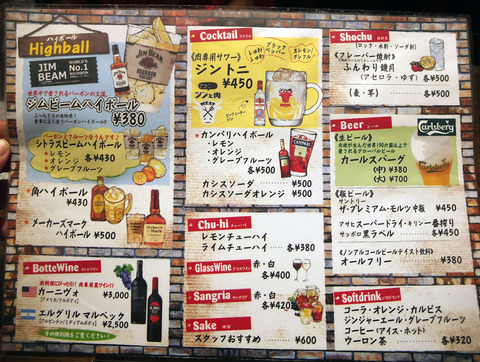 ハイボール
Highball
JIM BEAM
WORLD'S No.1 BOURBON
世界中で愛されるバーボンの王道。
ジムビームハイボール
¥380
バーボンとフルーツ合うんです♪
シトラスビームハイボール
・レモン
・オレンジ 各¥430
・グレープフルーツ
角ハイボール
¥430
メーカーズマーク
ハイボール ¥500
BotteWine ボトルワイン
肉料理にぴったり! 肉専用黒ワイン!!
カーニヴォ ¥3,000
[アメリカ/フルボディ]
エルグリル マルベック
[アルゼンチン/ミディアムボディ] ¥2,500
その他別紙をご覧ください!
Cocktail カクテル
《肉専用サワー》
ジントニ
¥450
しゅわ
しゅわ
ブラックペッパー
生レモン/グレフル!
MEAT
カンパリハイボール
・レモン
・オレンジ 各¥500
・グレープフルーツ
カシスソーダ ¥500
カシスソーダオレンジ ¥500
Chu-hi チューハイ
レモンチューハイ
ライムチューハイ 各¥380
GlassWine グラスワイン
赤・白
各¥400
Sangria サングリア
赤・白
各¥420
Sake 吟酒
スタッフおすすめ ¥600
Shochu 焼酎
(ロック・水割・ソーダ割)
《フレーバー焼酎》
ふんわり鏡月
(アセロラ・ゆず) 各¥500
(麦・芋) 各¥500
Beer ビール
《生ビール》
Carlsberg
カールスバーグ
(中) ¥380
(大) ¥700
《瓶ビール》
サントリー
ザ・プレミアム・モルツ 中瓶 ¥450
アサヒスーパードライ・キリン一番搾り
サッポロ黒ラベル 各¥450
《ノンアルコールビールテイスト飲料》
オールフリー ¥380
Softdrink ソフトドリンク
コーラ・オレンジ・カルピス
ジンジャーエール・グレープフルーツ
コーヒー(アイス・ホット)
ウーロン茶 各¥320